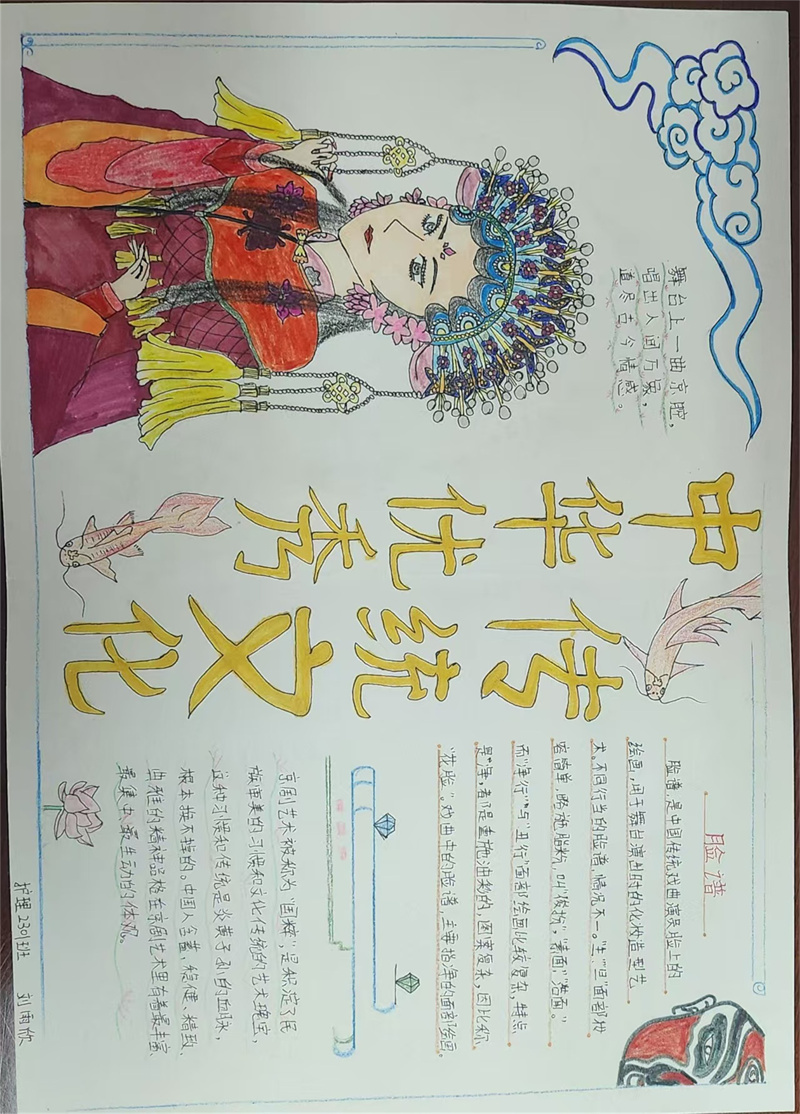 舞台上一曲京腔，
唱出人间万象，
道尽古今情感。
中华优秀
传统文化
脸谱
脸谱，是中国传统戏曲演员脸上的
绘画，用于舞台演出时的化妆造型艺
术。不同行当的脸谱，情况不一。“生”“旦”面部妆
容简单，略施脂粉，叫“俊扮”，“素面”，“洁面”。
而“净行”与“丑行”面部绘画比较复杂，特点
是“净，者都是重施油彩的，图案复杂，因此称
“花脸”。戏曲中的脸谱，主要指净的面部绘画。
京剧艺术被称为“国粹”，是积淀了民
族审美的习惯和文化传统的艺术瑰宝，
这种习惯和传统是炎黄子孙的血脉，
根本换不掉的。中国人含蓄、稳健、精致、
典雅的精神品格在京剧艺术里有着最丰富
最集中、最生动的体现。
护理2301班 刘雨欣